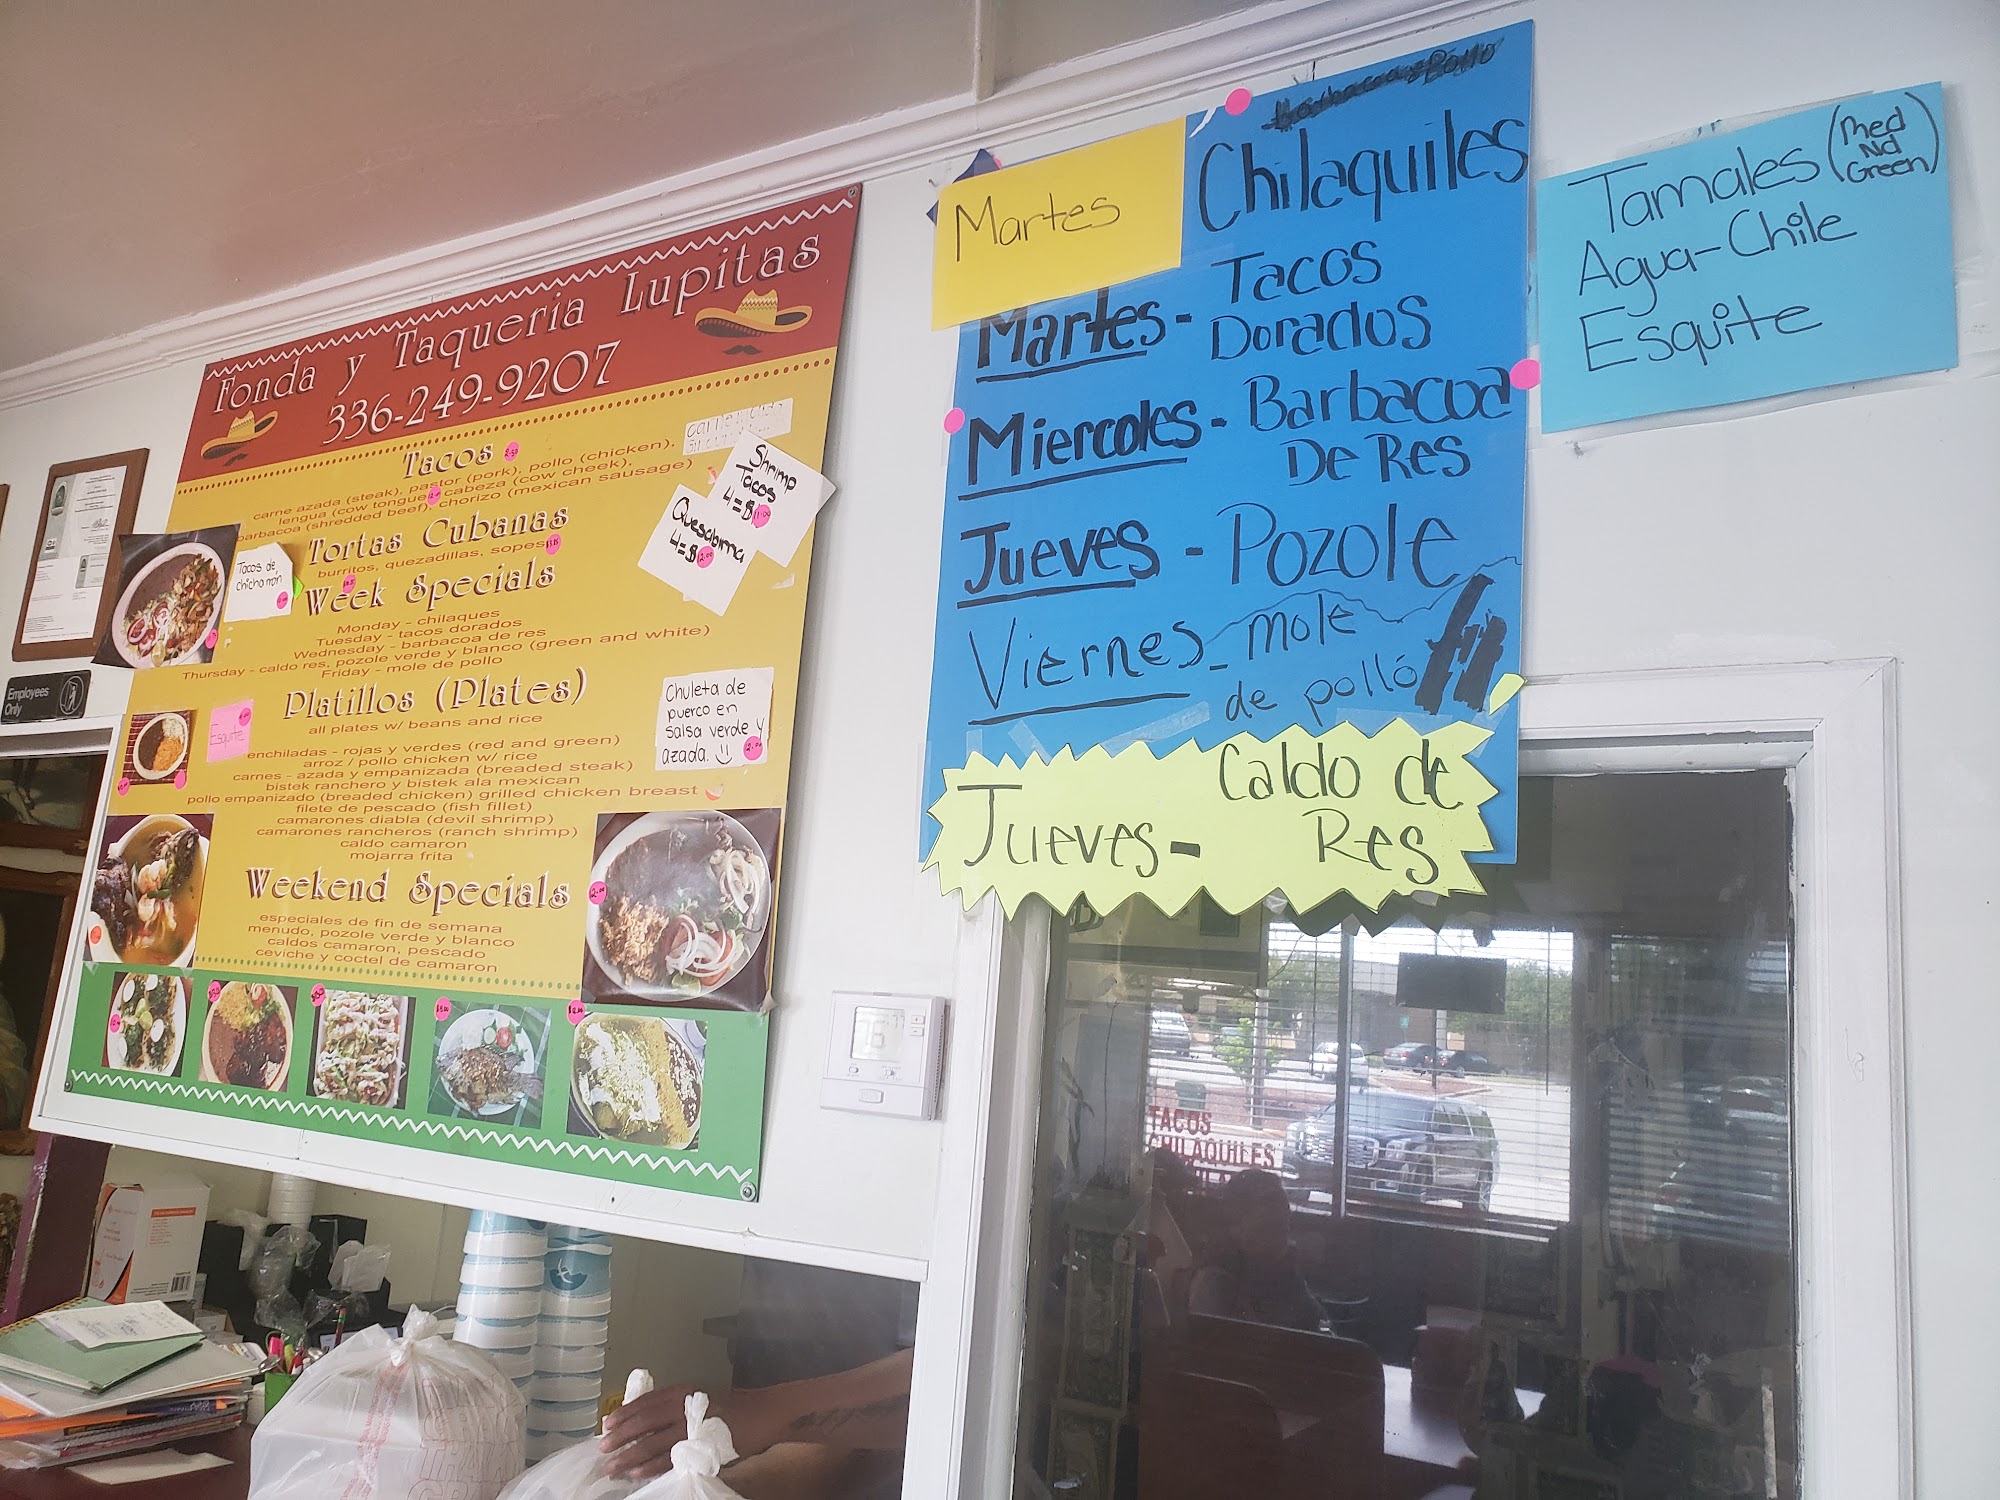 Fonda y Taqueria Lupitas
336-249-9207
Tacos
carne azada (steak), pastor (pork), pollo (chicken),
lengua (cow tongue), cabeza (cow cheek),
barbacoa (shredded beef), chorizo (mexican sausage)
Tortas Cubanas
burritos, quezadillas, sopes
Week Specials
Monday - chilaques
Tuesday - tacos dorados
Wednesday - barbacoa de res
Thursday - caldo res, pozole verde y blanco (green and white)
Friday - mole de pollo
Platillos (Plates)
all plates w/ beans and rice
enchiladas - rojas y verdes (red and green)
arroz / pollo chicken w/ rice
carnes - azada y empanizada (breaded steak)
bistek ranchero y bistek ala mexican
pollo empanizado (breaded chicken) grilled chicken breast
filete de pescado (fish fillet)
camarones diabla (devil shrimp)
camarones rancheros (ranch shrimp)
caldo camaron
mojarra frita
Weekend Specials
especiales de fin de semana
menudo, pozole verde y blanco
caldos camaron, pescado
ceviche y coctel de camaron
Shrimp
Tacos
4=$11.00
Quesabirria
4=$12.00
Tacos de
chicharrón
Esquite
Chuleta de
puerco en
salsa verde y
azada.
Employees
Only
Martes
Chilaquiles
Martes - Tacos
Dorados
Miercoles - Barbacoa
De Res
Jueves - Pozole
Viernes - mole
de polló
Jueves - Caldo de
Res
Tamales (Red
Nd
Green)
Agua-Chile
Esquite
TACOS
CHILAQUILES